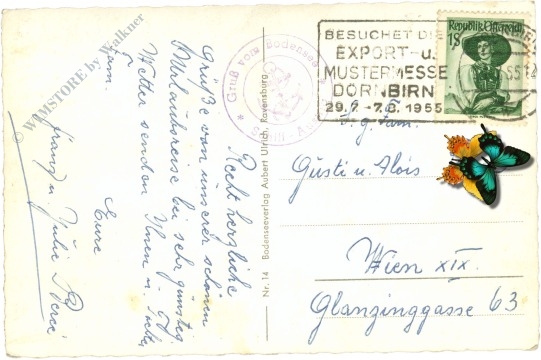 WIMSTORE by Walkner
Recht herzliche
Grüße von unserer schönen
Urlaubsreise bei sehr günstig.
Wetter senden Ihnen u. Fr.
Fam.
Eure
Franz u. Julie
Nr. 14 Bodenseeverlag Aubert Ulrich, Ravensburg
Gruß vom Bodensee
BESUCHET DIE
EXPORT- u.
MUSTERMESSE
DORNBIRN
29.7. - 7.8. 1955
Republik Österreich
1S
S. g. Fam.
Gusti u. Alois
Wien XIX.
Glanzinggasse 63